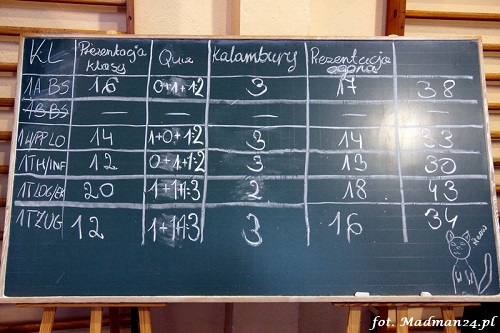 KL Prezentacja klasy Quiz Kalambury Prezentacja ogólna
1A BS 16 0+1+1=2 3 17 38
1B BS — — — —
1H/PP LO 14 1+0+1=2 3 14 33
1TH/INF 12 0+1+1=2 3 13 30
1TLOG/EK 20 1+1+1=3 2 18 43
1TŻUG 12 1+1+1=3 3 16 34
fot. Madman24.pl